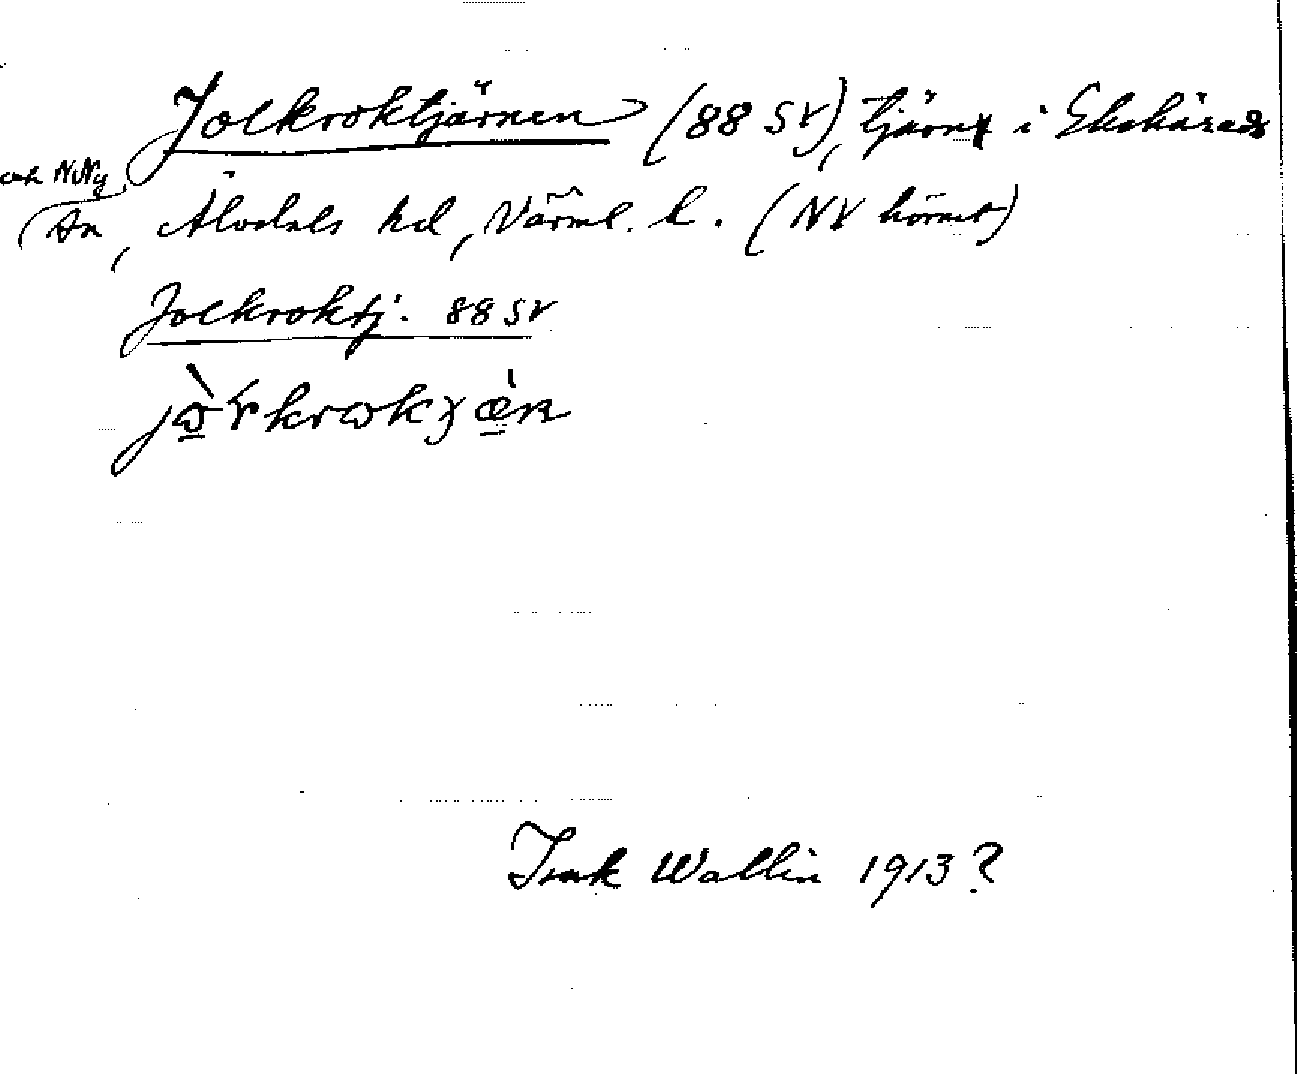 Jolkroktjärnen (88 SV), tjärn i Ekshärads
och N.Ny
sn, Älvdals hd, Värml. l. (NV hörnet)
Jolkroktj. 88 SV
Isak Wallin 1913?